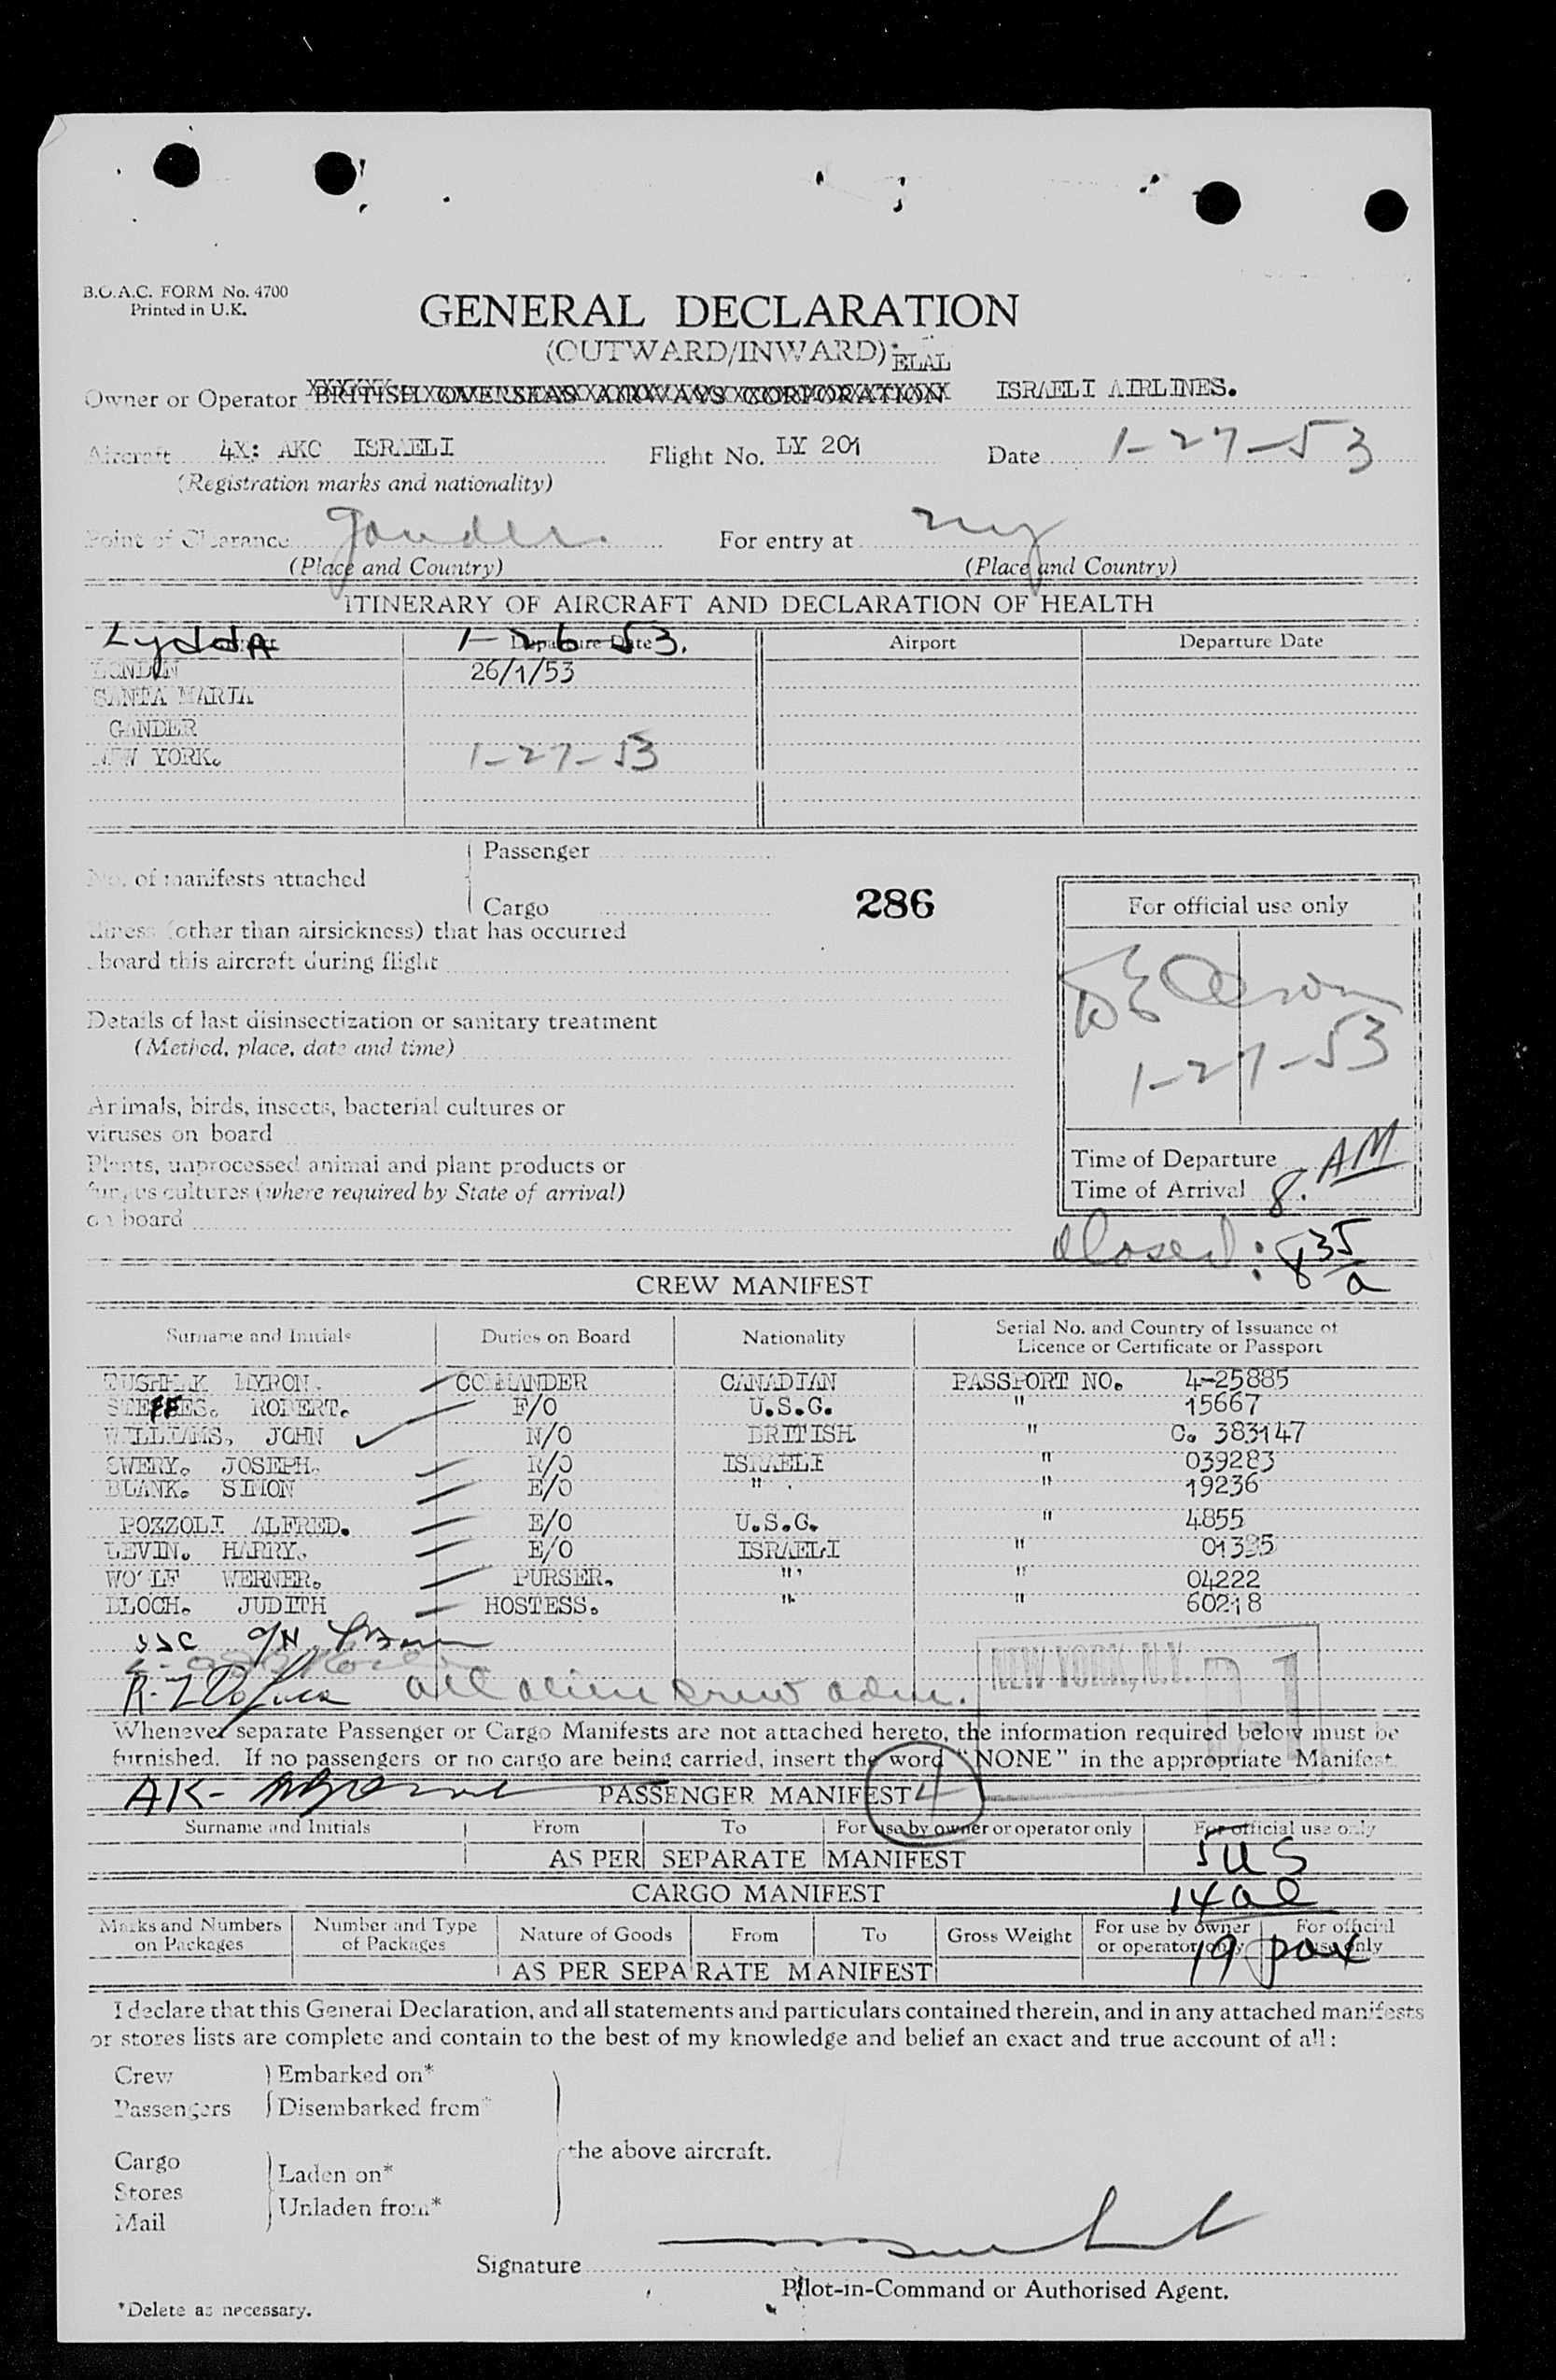 B.O.A.C. FORM No. 4700
Printed in U.K.
GENERAL DECLARATION
(OUTWARD/INWARD)* ELAL
Owner or Operator BRITISH OVERSEAS AIRWAYS CORPORATION ISRAELI AIRLINES.
Aircraft 4X: AKC ISRAELI Flight No. LY 201 Date 1-27-53
(Registration marks and nationality)
Point of Clearance Gander For entry at NY
(Place and Country) (Place and Country)
ITINERARY OF AIRCRAFT AND DECLARATION OF HEALTH
Departure Date Airport Departure Date
Lydda 1-26-53.
LONDON 26/1/53
SANTA MARIA
GANDER
NEW YORK. 1-27-53
No. of manifests attached
Passenger
Cargo
286
For official use only
Illness (other than airsickness) that has occurred
aboard this aircraft during flight
1-27-53
Details of last disinsectization or sanitary treatment
(Method, place, date and time)
Animals, birds, insects, bacterial cultures or
viruses on board
Plants, unprocessed animal and plant products or
fungus cultures (where required by State of arrival)
on board
Time of Departure
Time of Arrival 8. AM
closed: 8 35/a
CREW MANIFEST
Surname and Initials Duties on Board Nationality Serial No. and Country of Issuance of Licence or Certificate or Passport
MYRON. COMMANDER CANADIAN PASSPORT NO. 4-25885
STEFFES. ROBERT. F/O U.S.G. " 15667
WILLIAMS, JOHN N/O BRITISH " C. 383147
SWERY. JOSEPH. R/O ISRAELI " 039283
BLANK. SIMON E/O " 19236
POZZOLI ALFRED. E/O U.S.G. " 4855
LEVIN. HARRY. E/O ISRAELI "
WOLF WERNER. PURSER. " " 04222
BLOCH. JUDITH HOSTESS. " " 60218
all alien crew adm.
NEW YORK, N.Y.
Whenever separate Passenger or Cargo Manifests are not attached hereto, the information required below must be
furnished. If no passengers or no cargo are being carried, insert the word "NONE" in the appropriate Manifest.
PASSENGER MANIFEST 4
Surname and Initials From To For use by owner or operator only For official use only
AS PER SEPARATE MANIFEST 5 US
CARGO MANIFEST 14 al
Marks and Numbers on Packages Number and Type of Packages Nature of Goods From To Gross Weight For use by owner or operator only For official use only
AS PER SEPARATE MANIFEST 19 pax
I declare that this General Declaration, and all statements and particulars contained therein, and in any attached manifests
or stores lists are complete and contain to the best of my knowledge and belief an exact and true account of all:
Crew Embarked on*
Passengers Disembarked from*
the above aircraft.
Cargo Laden on*
Stores
Unladen from*
Mail
Signature
Pilot-in-Command or Authorised Agent.
*Delete as necessary.